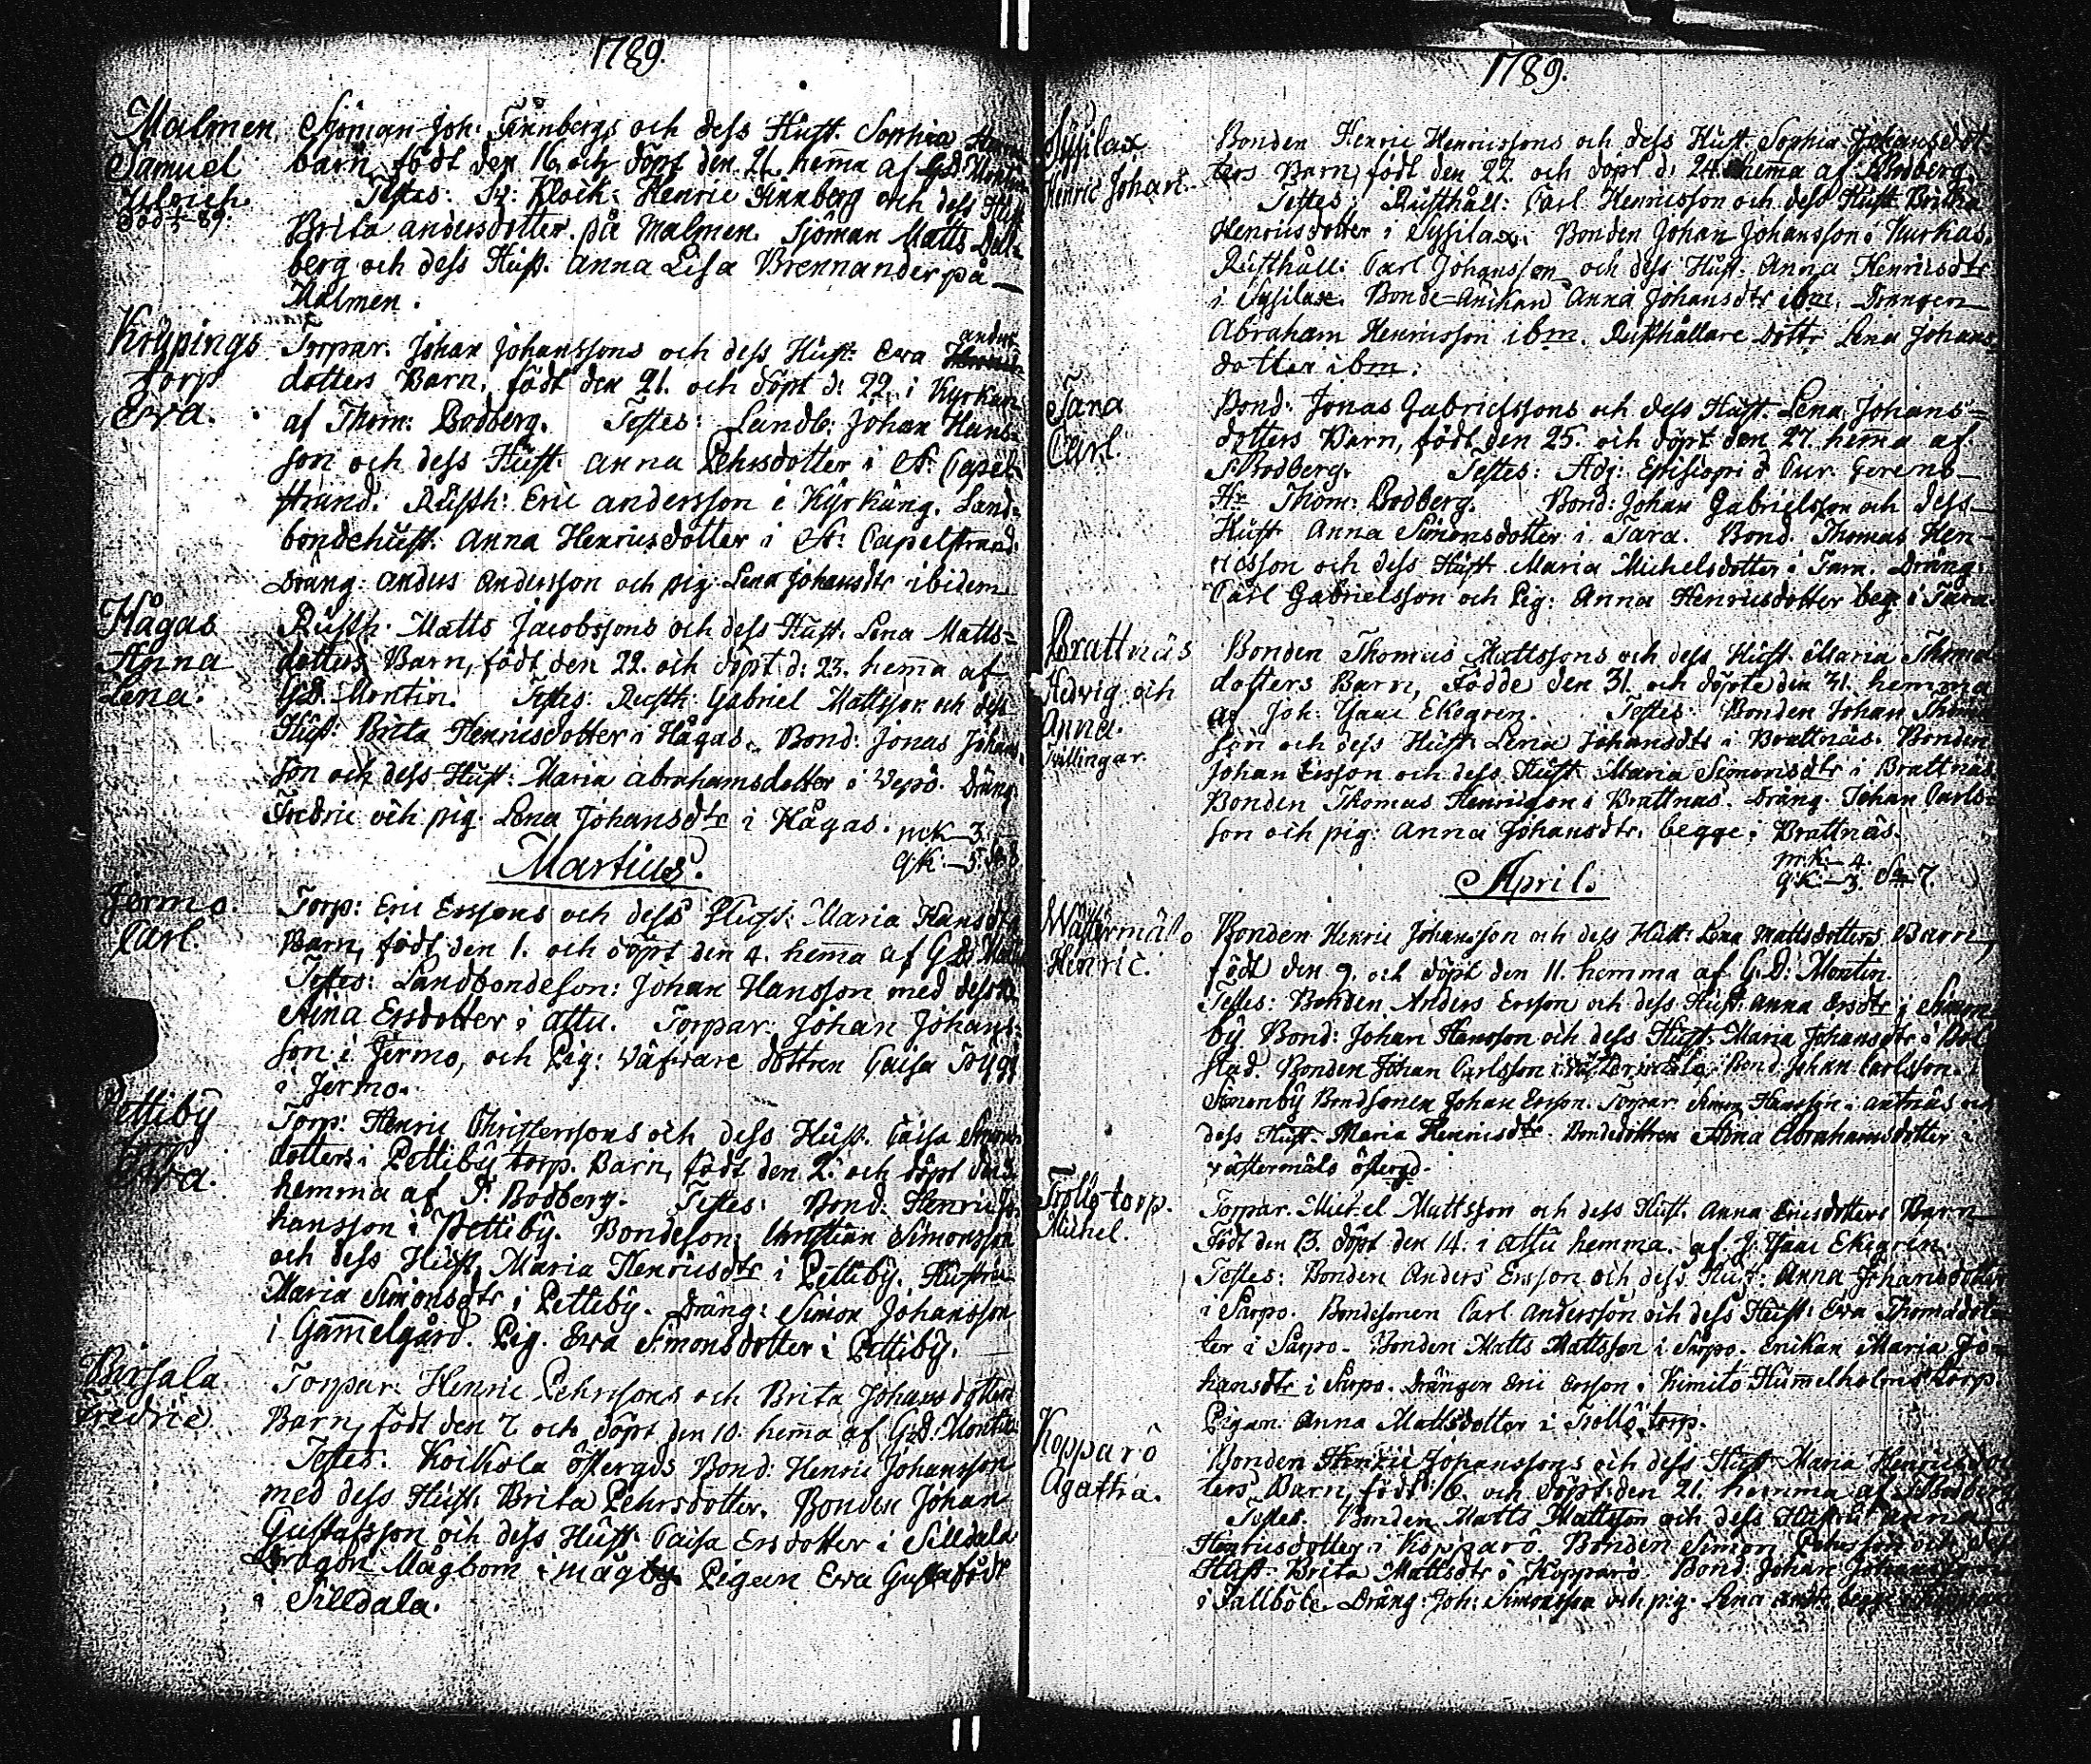 1789.
Malmen
Samuel
Ulrich.
död 89.
Sjöman Joh: Finnbergs och dess Hust. Sophia
barn, födt den 16. och döpt den 21. hem̄a af G:D: Montin
Testes: Klock: Henric Finnberg och dess Hust
Brita andersdotter på Malmen. Sjöman Matts
berg och dess Hust. Anna Lisa Brennander på
Malmen.
Krypings
torp
Eva.
Torpar. Johan Johanssons och dess Hust: Eva anders
dotters Barn, födt den 21. och döpt d: 22. i Kyrkan
af Thom: Bodberg. Testes: Landb: Johan Hans-
son och dess Hust: Anna Pehrsdotter i St: Capel
strand. Rusth: Eric andersson i Kyrkäng. Land-
bondehust: Anna Henricsdotter i St: Capelstrand.
Dräng: anders Andersson och pig: Lena Johansdtr ibidem
Hågas
Anna
Lena.
Rusth: Matts Jacobssons och dess Hust. Lena Matts-
dotters Barn, födt den 22. och döpt d: 23. hem̄a af
G:D: Montin. Testes: Rusth: Gabriel Mattsson och dess
Hust: Brita Henricsdotter i Hågas. Bond: Jonas Johans
son och dess Hust: Maria abrahamsdotter i Vepö. Dräng
Fredric och pig. Lena Johansdtr i Hågas.
mK-3.
qK:-5.
Martius.
Jermo.
Carl.
Torp: Eric Erssons och dess Hust: Maria Hansdtr
Barn, födt den 1. och döpt den 4. hem̄a af G:D: Montin
Testes: Landbondeson: Johan Hansson med dess
Stina Ersdotter i attu. Torpar: Johan Johans-
son i Jermo, och Pig: Väfvare dottren Caisa
i Jermo.
Pettiby
Eva.
Torp: Henric Christerssons och dess Hust. Caisa Simons
dotters i Pettiby torp. Barn, födt den 2. och döpt
hemma af T: Bodberg. Testes: Bond: Henric Jo-
hansson i Pettiby. Bondeson: Christian Simonsson
och dess Hust, Maria Henricsdtr i Pettiby. Hustru
Maria Simonsdtr i Pettiby. Dräng: Simon Johansson
i Gam̄elgård. Pig. Eva Simonsdotter i Pettiby.
Bussala
Fredric
Torpar: Henric Pehrssons och Brita Johans dotters
Barn, födt den 7. och döpt den 10. hem̄a af G:D: Montin
Testes: Koikola östergds Bond: Henric Johansson
med dess Hust: Brita Pehrsdotter. Bonden Johan
Gustafsson och dess Hust. Caisa Ersdotter i Silldala
Dragon Mågbom i mågby. Pigan Eva Gustafsdtr
i Silldala.
1789.
Sysilax
Henric Johan.
Bonden Henric Henricssons och dess Hust. Sophia Johansdot-
ters Barn, födt den 22. och döpt d: 24. hem̄a af T:Bodberg.
Testes: Rusthåll: Carl Henricsson och dess Hust. Britha
Henricsdotter i Sysilax. Bonden Johan Johansson i Kurkas.
Rusthåll: Carl Johansson och dess Hust: Anna Henricsdtr
i Sysilax. Bonde-änikan Anna Johansdtr ibm. Drängen
Abraham Henricsson ibm. Rusthållare dottr Lena Johans-
dotter ibm.
Tara
Carl.
Bond: Jonas Gabrielssons och dess Hust. Lena Johans-
dotters Barn, födt den 25. och döpt den 27. hem̄a af
T:Bodberg. Testes: Adj: Episcopi & Cur: Gerens
Hr Thom: Bodberg. Bond: Johan Gabrielsson och dess
Hust Anna Simonsdotter i Tara. Bond. Thomas Hen-
ricsson och dess Hust Maria Michelsdotter i Tara. Dräng:
Carl Gabrielsson och Pig: Anna Henricsdotter beg: i Tara.
Brattnäs
Hedvig och
Anna.
Tvillingar.
Bonden Thomas Mattssons och dess Hust Maria Thomas
dotters Barn, Födde den 31. och döpte den 31. hemma
af Joh: Isaac Ekegren. Testes: Bonden Johan Thomas
son och dess Hust. Lena Johansdtr i Brattnäs. Bonden
Johan Ersson och dess Hust. Maria Simonsdtr i Brattnäs
Bonden Thomas Henricson i Brattnäs. Dräng. Johan Carls-
son och pig: Anna Johansdtr. begge i Brattnäs.
mK.-4.
qK-3. Sa 7.
April.
Wästermälo
Henric.
Bonden Henric Johansson och dess Hust: Lena Mattsdotters Barn,
födt den 9. och döpt den 11. hemma af G:D: Montin.
Testes: Bonden Anders Ersson och dess Hust: Anna Ersdtr i Simon-
by. Bond: Johan Hansson och dess Hust: Maria Johansdtr i Bol
stad. Bonden Johan Carlsson i Västermälo. Bond Johan Carlsson i
Simonby Bondsonen Johan Ersson. Torpar. Simon Hansson i antnäs och
dess Hust. Maria Henricsdtr. Bondedottren Anna Abrahamsdotter i
västermälo östergd.
Trollö torp.
Michel.
Torpar. Michel Mattsson och dess Hust. Anna Ericsdotters Barn
Födt den 13. döpt den 14. i attu hemma. af J: Isaac Ekegren.
Testes: Bonden Anders Ersson och dess Hust: Anna Johansdotter
i Sarpo. Bondesonen Carl andersson och dess Hust: Eva Thomasdot-
ter i Sarpo. Bonden Matts Mattsson i Sarpo. Enikan Maria Jo-
hansdtr i Sarpo. Drängen Eric Ersson i Kimito Hum̄elholms torp.
Pigan Anna Mattsdotter i Trollö torp.
Kopparö
Agatha.
Bonden Henric Johanssons och dess Hust Maria Henricsdot
ters Barn, födt 16. och döpt den 21. hemma af T:Bodberg
Testes. Bonden Matts Mattsson och dess Hustru anna
Henricsdotter i Kopparö. Bonden Simon Pehrsson och dess
Hust. Brita Mattsdtr i Kopparö. Bond: Johan Johansson
i Tallböle Dräng: Joh: Simonsson och pig. Lena andtr. begge i